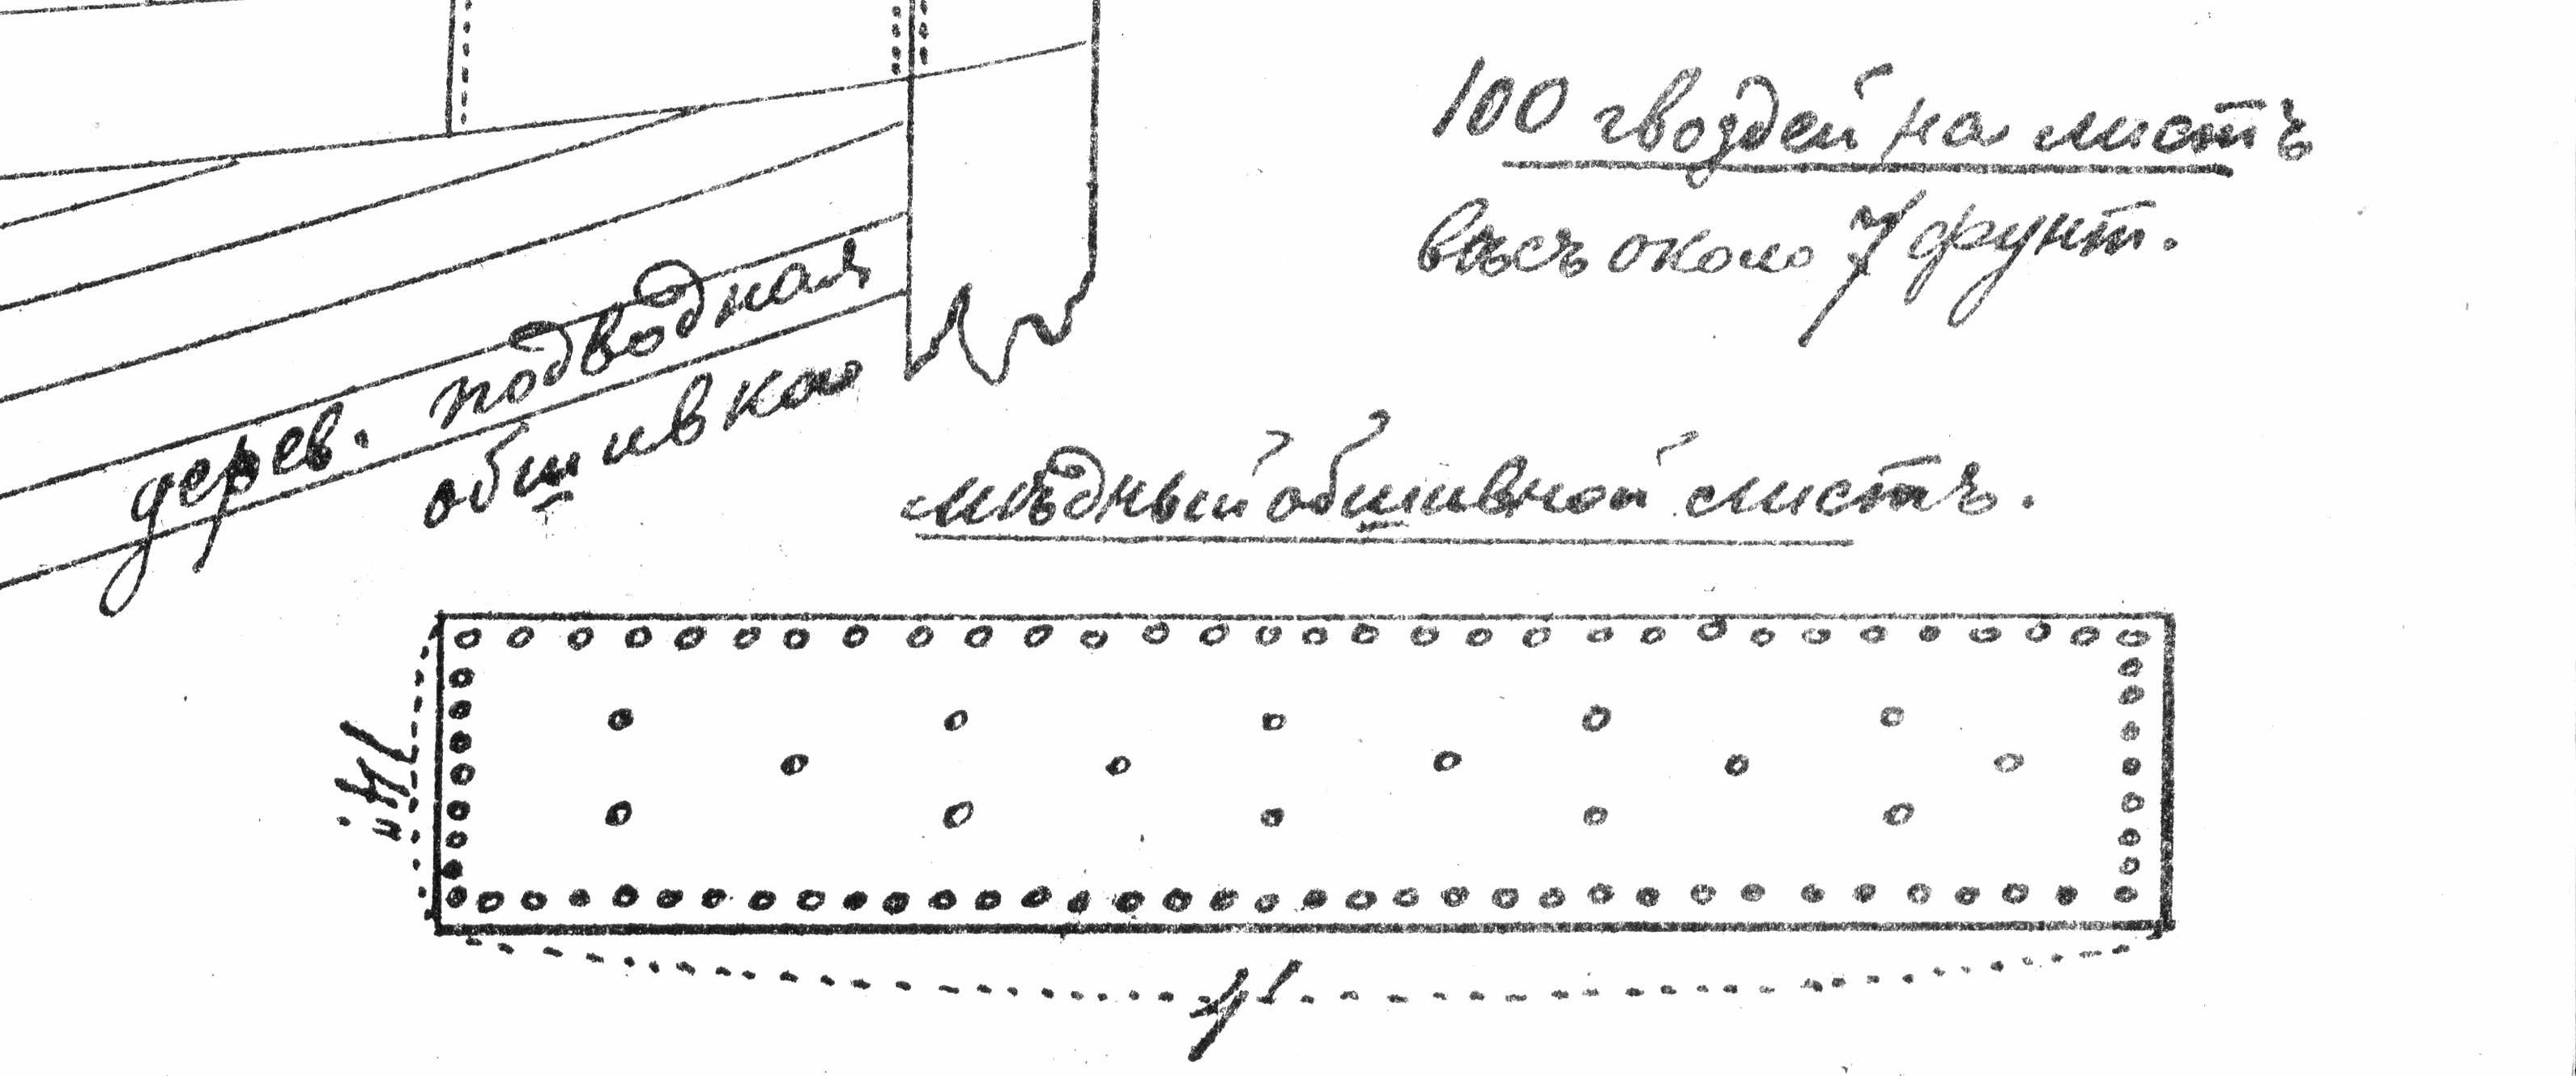 100 гвоздей на листъ
вѣсъ около 7 фунт.
дерев. подводная
обшивка
мѣдный обшивной листъ.
14"
4'